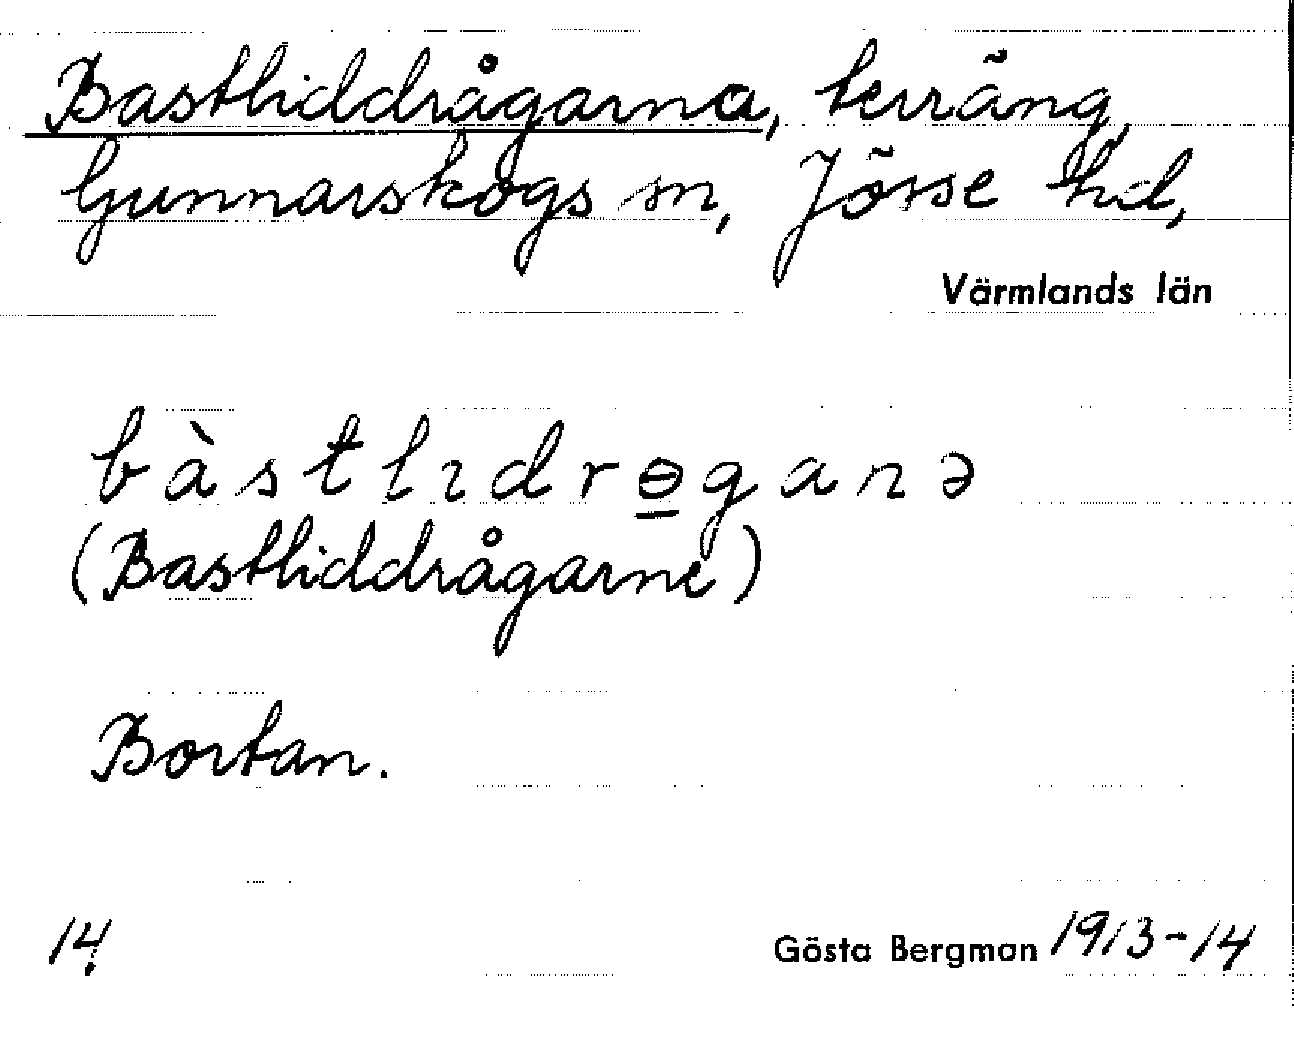 Bastliddrågarna, terräng,
Gunnarskogs sn, Jösse hd,
Värmlands län
bàstlıdrɵ̲ganə
(Bastliddrågarne)
Bortan.
14.
Gösta Bergman 1913-14